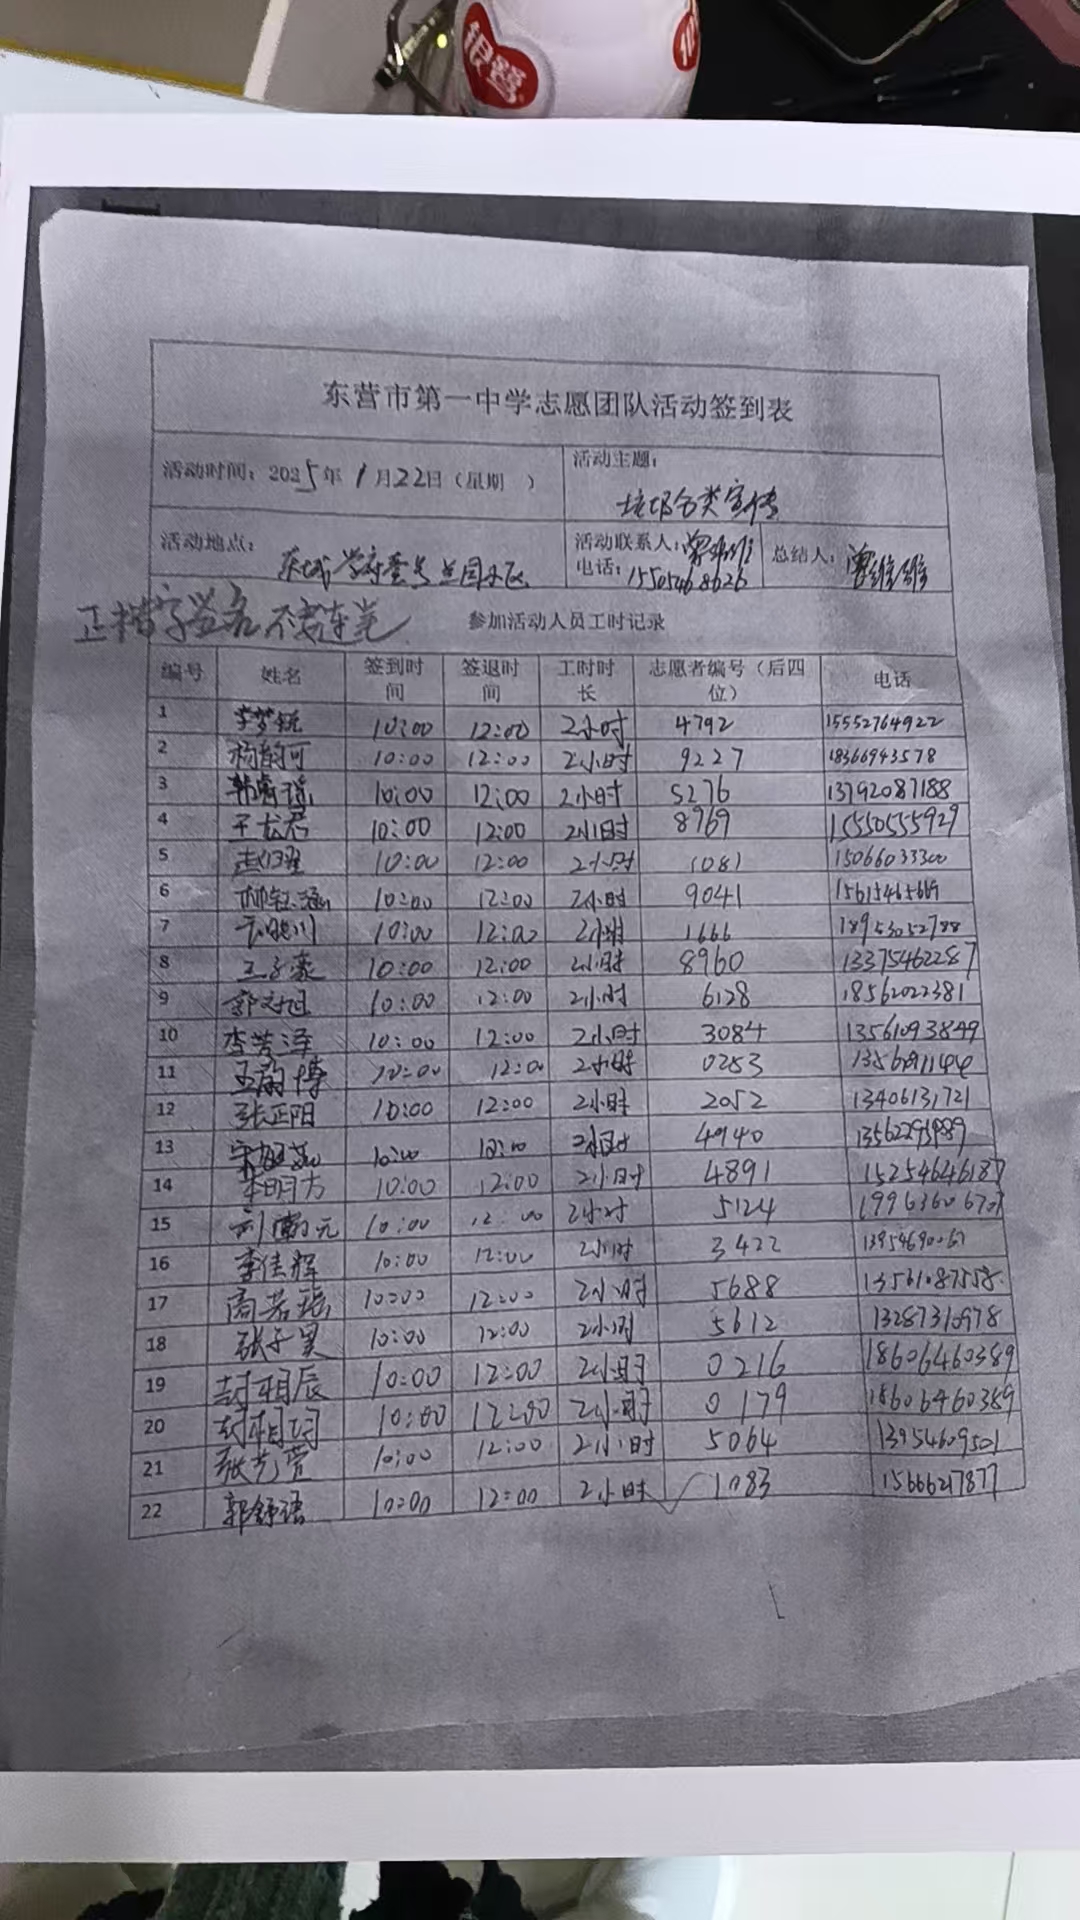 银鹭
东营市第一中学志愿团队活动签到表
活动时间：2025年1月22日（星期 ） 活动主题：
垃圾分类宣传
活动地点：东城学府壹号兰园小区 活动联系人：曾维维 总结人：曾维维
电话：15505468626
正楷字签名 不要连笔 参加活动人员工时记录
编号 姓名 签到时间 签退时间 工时时长 志愿者编号（后四位） 电话
1 李梦锐 10:00 12:00 2小时 4792 15552764922
2 杨韵可 10:00 12:00 2小时 9227 18366943578
3 韩睿瑶 10:00 12:00 2小时 5276 13792087188
4 于龙君 10:00 12:00 2小时 8969 15550555929
5 10:00 12:00 2小时 1081 15066033300
6 10:00 12:00 2小时 9041
7 10:00 12:00 2小时 1666 18953052788
8 王子豪 10:00 12:00 2小时 8960 13375462287
9 10:00 12:00 2小时 6128 18562022381
10 李芳泽 10:00 12:00 2小时 3084 13561093849
11 王蔚博 10:00 12:00 2小时 0253
12 张正阳 10:00 12:00 2小时 2052 13406131721
13 10:00 12:00 2小时 4940
14 李明方 10:00 12:00 2小时 4891 15254646187
15 10:00 12:00 2小时 5124
16 李佳辉 10:00 12:00 2小时 3422
17 高若瑶 10:00 12:00 2小时 5688 13561087558
18 张子昊 10:00 12:00 2小时 5612 13287310978
19 封相辰 10:00 12:00 2小时 0216 18606460389
20 封相羽 10:00 12:00 2小时 0179 18606460389
21 张芫萱 10:00 12:00 2小时 5064 13954609501
22 郭舒语 10:00 12:00 2小时 1083 15666217877